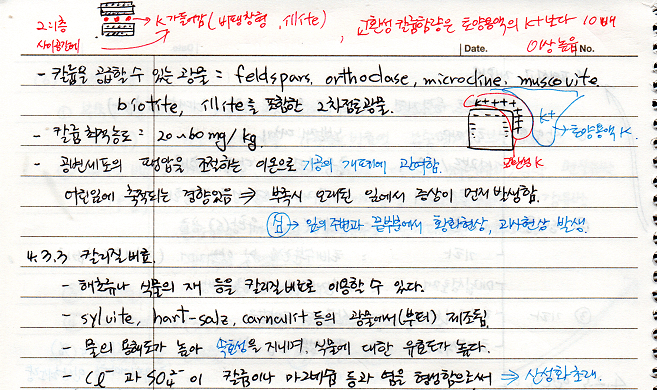 2:1층 사이공간에 → K가 들어감 (비팽창형, illite), 교환성 칼륨함량은 토양용액의 K+보다 10배 이상 높음
Date. No.
- 칼륨을 공급할 수 있는 광물 = feldspars, orthoclase, microcline, muscovite,
biotite, illite를 포함한 2차점토광물.
K++++ K+ → 토양용액 K.
교환성 K
- 칼륨 최적농도 = 20~60 mg/kg.
- 공변세포의 팽압을 조절하는 이온으로 기공의 개폐에 관여함.
어린잎에 축적되는 경향있음 ⇒ 부족시 오래된 잎에서 증상이 먼저 발생함.
→ 잎의 주변과 끝부분에서 황화현상, 괴사현상 발생.
4.3.3 칼리질비료.
- 해초류나 식물의 재 등을 칼리질비료로 이용할 수 있다.
- sylvite, hart-salz, carnallit 등의 광물에서(부터) 제조됨.
- 물의 용해도가 높아 속효성을 지니며, 식물에 대한 유효도가 높다.
- Cl⁻ 과 SO4²⁻ 이 칼륨이나 마그네슘 등과 염을 형성함으로써 ⇒ 산성화 초래.